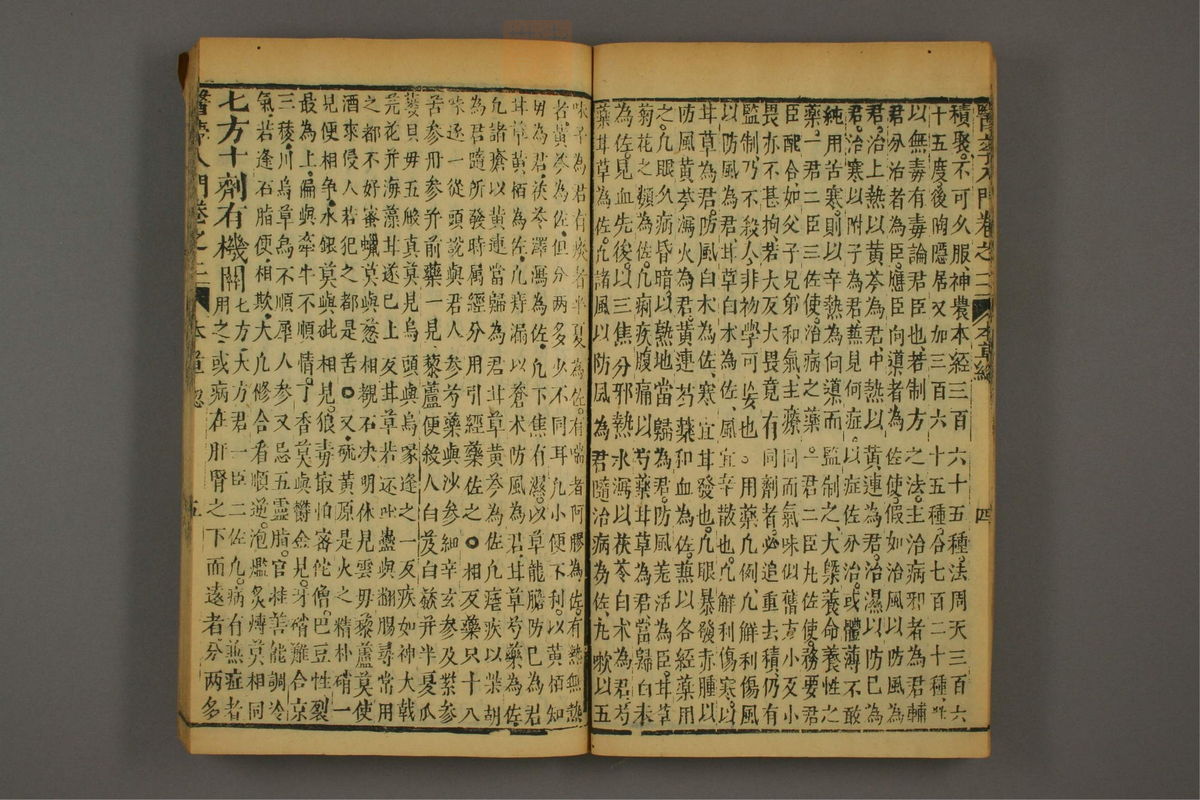 醫門入門卷之二 本草總 四
積聚。不可久服。神農本經三百六十五種。法周天三百六
十五度。後陶隱居又加三百六十五種。合七百二十種。
以無毒有毒論君臣也。若制方之法。主治病邪者為君。輔
君分治者為臣。應臣向導者為佐使。假如治風。以防風為
君。治上熱以黃芩為君。中熱以黃連為君。治濕以防已為
君。治寒以附子為君。兼見何症。以症佐分治。或體薄不敢
純用苦寒。則以辛熱為向導而監制之。大槩養命養性之
藥。一君二臣三佐使。治病之藥。一君二臣九佐使。務要君
臣配合。如父子兄弟和氣。主療同而氣味似舊有小反小
畏亦不甚拘。若大反大畏。竟有同劑者。必追重去積。仍有
監制。乃不殺人。非初學可妄也。○用藥凡例。凡解利傷風
以防風為君。甘草白朮為佐。風宜辛散也。凡解利傷寒。以
甘草為君。防風白朮為佐。寒宜甘發也。凡眼暴發赤腫。以
防風黃芩瀉火為君。黃連芍藥和血為佐。兼以各經藥用
之。凡眼久病昏暗。以熟地當歸為君。防風羌活為臣。甘草
菊花之類為佐。凡痢疾腹痛。以芍藥甘草為君。當歸白朮
為佐。見血先後。以三焦分邪熱。水瀉以茯苓白朮為君。芍
藥甘草為佐。凡諸風以防風為君。隨治病為佐。凡嗽以五
味子為君。有痰者半夏為佐。有喘者阿膠為佐。有熱無熱
者黃芩為佐。但分兩多少不同耳。凡小便不利。以黃栢知
毋為君。茯苓澤瀉為佐。凡下焦有濕。以草龍膽防已為君
甘草黃栢為佐。凡痔漏以蒼朮防風為君。甘草芍藥為佐。
凡諸瘡以黃連當歸為君。甘草黃芩為佐。凡瘧疾以柴胡
為君。隨所發時屬經分用引經藥佐之。○相反藥只十八
味。逐一從頭說與君。人參芍藥與沙參。細辛玄參及紫參
苦參丹參并前藥。一見藜蘆便殺人。白芨白蘞并半夏。瓜
蔞貝毋五般真。莫見烏頭與烏喙。逢之一反疾如神。大戟
芫花并海藻。甘遂已上反甘草。若還吐蠱與翻腸。尋常用
之都不好。蜜蠟莫與葱相覩。石决明休見雲毋。藜蘆莫使
酒來侵。人若犯之都是苦。○又硫黃原是火之精。朴硝一
見便相争。水銀莫與砒相見。狼毒最怕密佗僧。巴豆性裂
最為上。偏與牽牛不順情。丁香莫與鬱金見。牙硝難合京
三稜。川烏草烏不順犀。人參又忌五靈脂。官桂善能調冷
氣。若逢石脂便相欺。大凡修合看順逆。炮爁炙煿莫相同
七方十劑有機關 七方。大方君一臣二佐九。病有兼症者用之。或病在肝腎之下而遠者。分两多
醫學入門卷之二 本草總 五